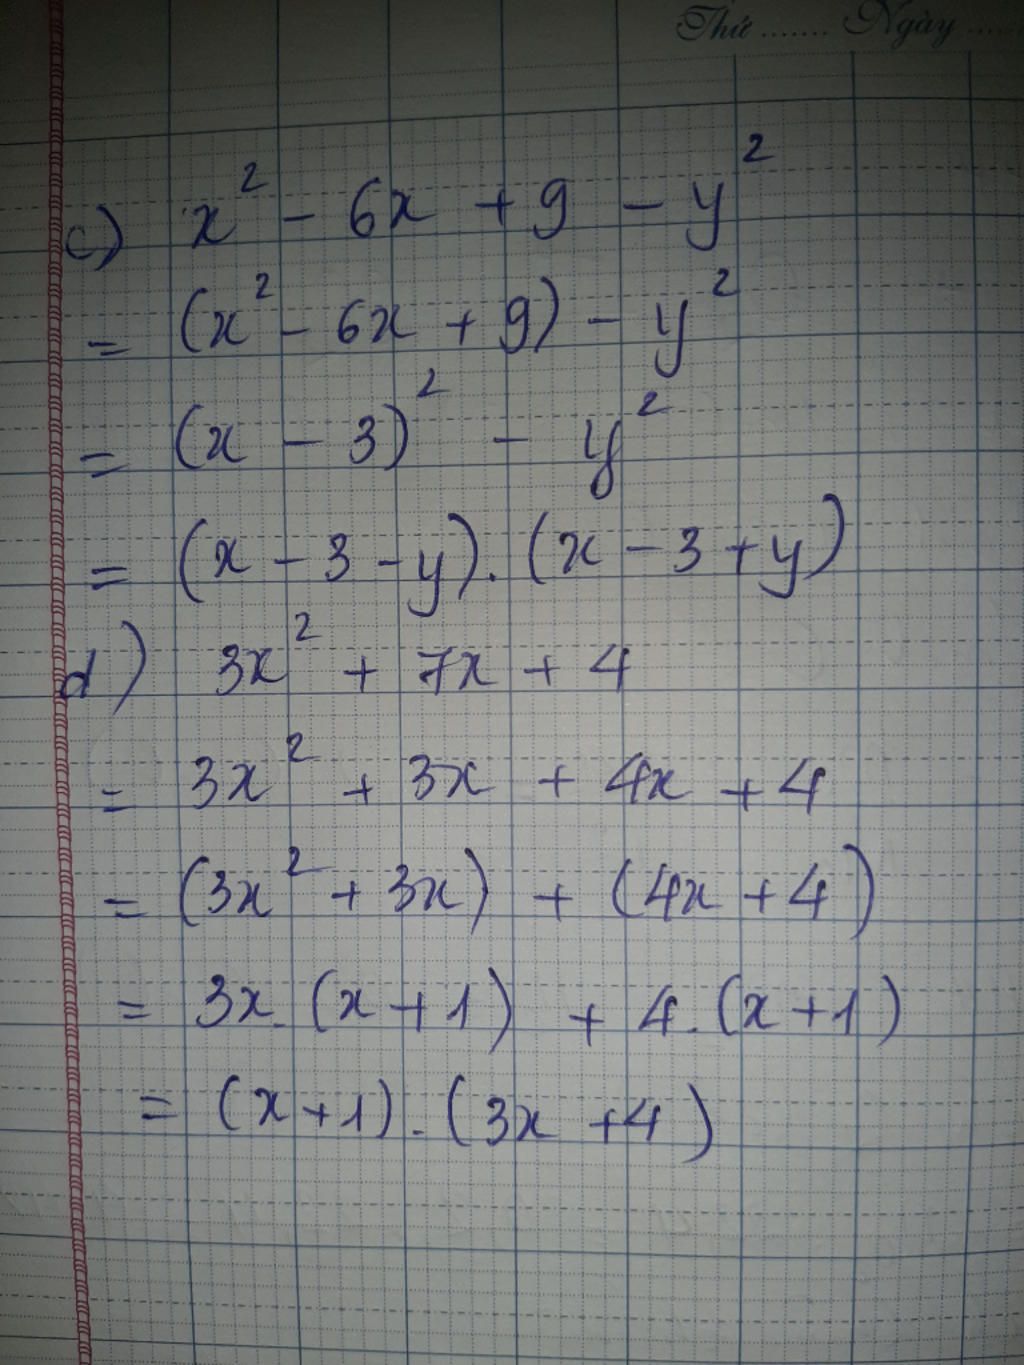 Thứ ....... Ngày ......
c) x² - 6x + 9 - y²
= (x² - 6x + 9) - y²
= (x - 3)² - y²
= (x - 3 - y) . (x - 3 + y)
d) 3x² + 7x + 4
= 3x² + 3x + 4x + 4
= (3x² + 3x) + (4x + 4)
= 3x . (x + 1) + 4 . (x + 1)
= (x + 1) . (3x + 4)